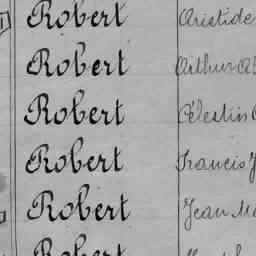 Robert Aristide
Robert Arthur
Robert Célestin
Robert Francis
Robert Jean
Robert